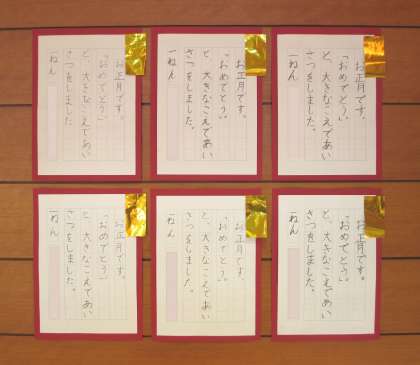 お正月です。
「おめでとう」
と、大きなこえであい
さつをしました。
一ねん
お正月です。
「おめでとう」
と、大きなこえであい
さつをしました。
一ねん
お正月です。
「おめでとう」
と、大きなこえであい
さつをしました。
一ねん
お正月です。
「おめでとう」
と、大きなこえであい
さつをしました。
一ねん
お正月です。
「おめでとう」
と、大きなこえであい
さつをしました。
一ねん
お正月です。
「おめでとう」
と、大きなこえであい
さつをしました。
一ねん